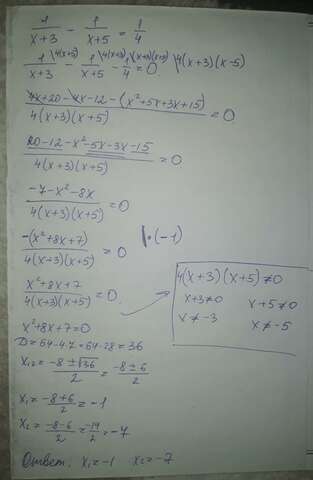 1/(x+3) - 1/(x+5) = 1/4
1/(x+3) \4(x+5) - 1/(x+5) \4(x+3) - 1/4 \(x+3)(x+5) = 0 \4(x+3)(x-5)
(4x+20-4x-12-(x²+5x+3x+15))/(4(x+3)(x+5)) = 0
(20-12-x²-5x-3x-15)/(4(x+3)(x+5)) = 0
(-7-x²-8x)/(4(x+3)(x+5)) = 0
-(x²+8x+7)/(4(x+3)(x+5)) = 0 |·(-1)
(x²+8x+7)/(4(x+3)(x+5)) = 0
4(x+3)(x+5)≠0
x+3≠0 x+5≠0
x≠-3 x≠-5
x²+8x+7=0
D=64-4·7=64-28=36
x₁,₂=(-8±√36)/2=(-8±6)/2
x₁=(-8+6)/2=-1
x₂=(-8-6)/2=-14/2=-7
Ответ. x₁=-1 x₂=-7